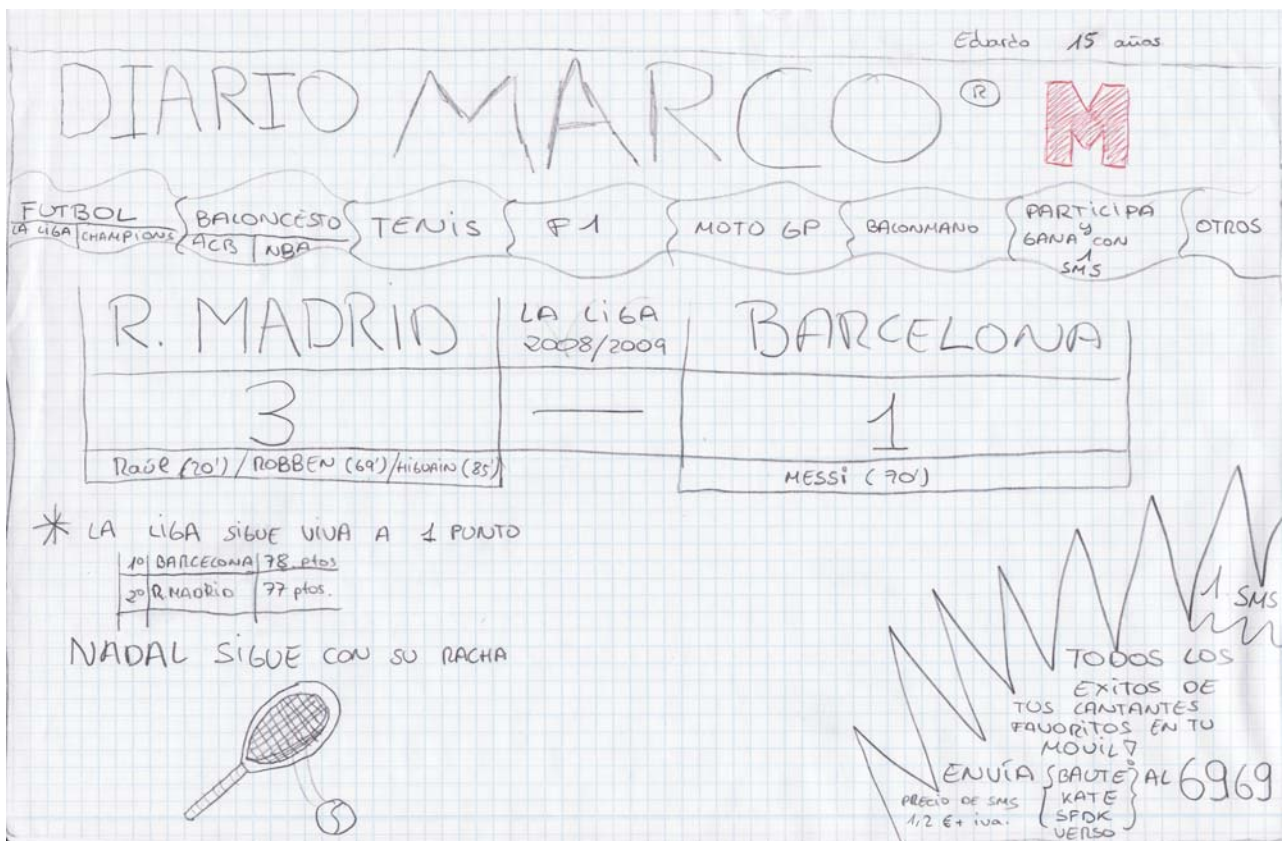 Eduardo 15 años
DIARIO MARCO ® M
FUTBOL
LA LIGA | CHAMPIONS
BALONCESTO
ACB | NBA
TENIS
F1
MOTO GP
BALONMANO
PARTICIPA
y
GANA CON
1
SMS
OTROS
R. MADRID
LA LIGA
2008/2009
BARCELONA
3 — 1
Raúl (20') / ROBBEN (69') / HIGUAIN (85')
MESSI (70')
* LA LIGA SIGUE VIVA A 1 PUNTO
1º BARCELONA 78 ptos
2º R. MADRID 77 ptos.
NADAL SIGUE CON SU RACHA
1 SMS
TODOS LOS
EXITOS DE
TUS CANTANTES
FAVORITOS EN TU
MOVIL!
ENVÍA {BAUTE} AL 6969
KATE
SFDK
VERSO
PRECIO DE SMS
1,2 € + iva.